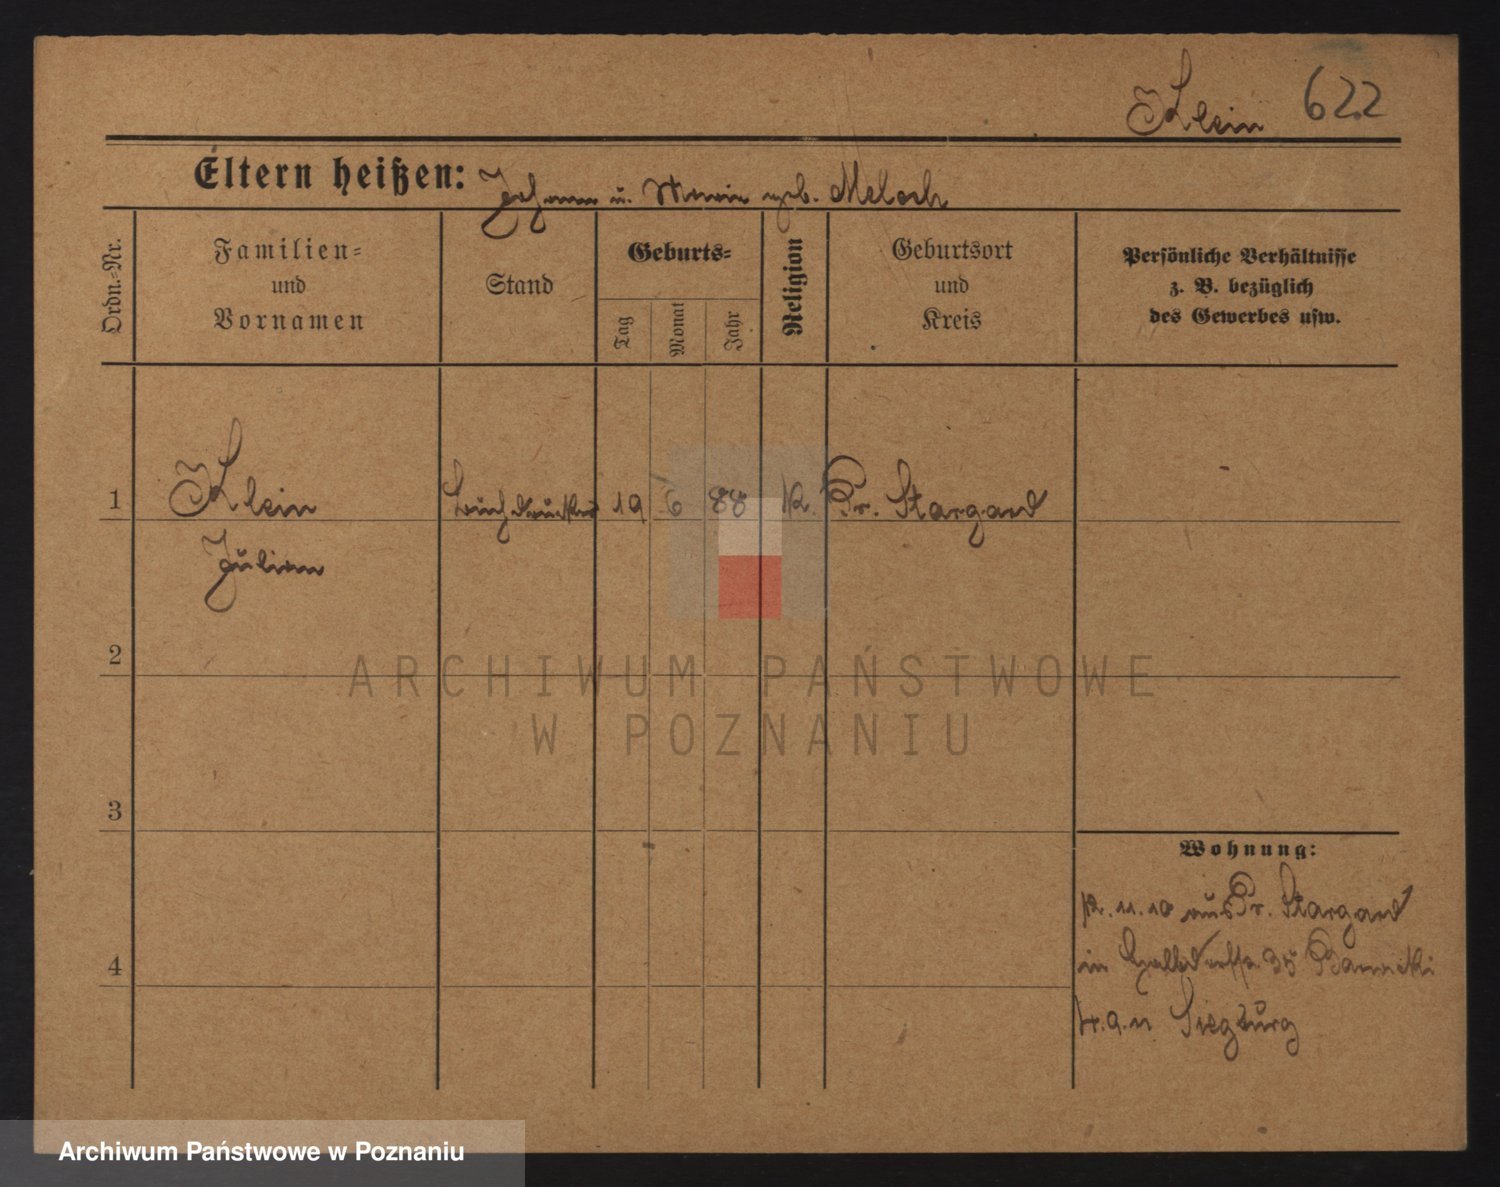 Klein 622
Eltern heißen: Johann u. Maria geb. Meloch
Ordn.=Nr.
Familien=
und
Vornamen
Stand
Geburts=
Tag
Monat
Jahr
Religion
Geburtsort
und
Kreis
Persönliche Verhältnisse
z. B. bezüglich
des Gewerbes usw.
1 Klein Buchdrucker 19 6 88 k. Pr. Stargard
Julian
2
3
4
Wohnung:
12.11.10 aus Pr. Stargard
in 35
4.9.11 Siegburg
ARCHIWUM PAŃSTWOWE
W POZNANIU
Archiwum Państwowe w Poznaniu